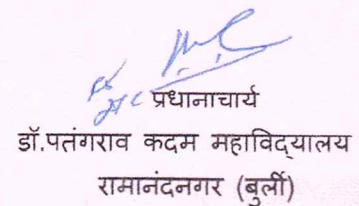 प्रधानाचार्य
डॉ.पतंगराव कदम महाविद्यालय
रामानंदनगर (बुर्ली)